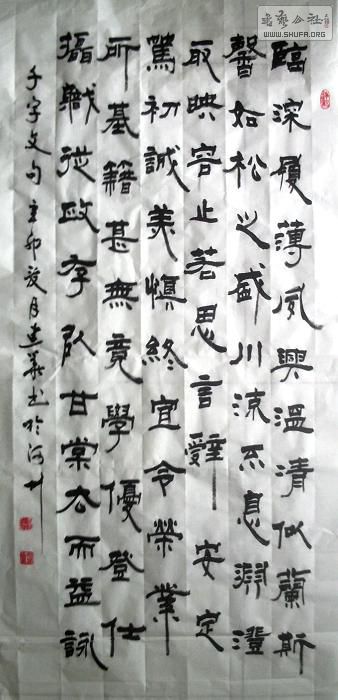 臨深履薄夙興溫清似蘭斯
馨如松之盛川流不息淵澄
取映容止若思言辭安定
篤初誠美慎終宜令榮業
所基籍甚無竟學優登仕
攝職從政存以甘棠去而益詠
千字文句 辛卯 月建華书於河州
書藝公社
WWW.SHUFA.ORG